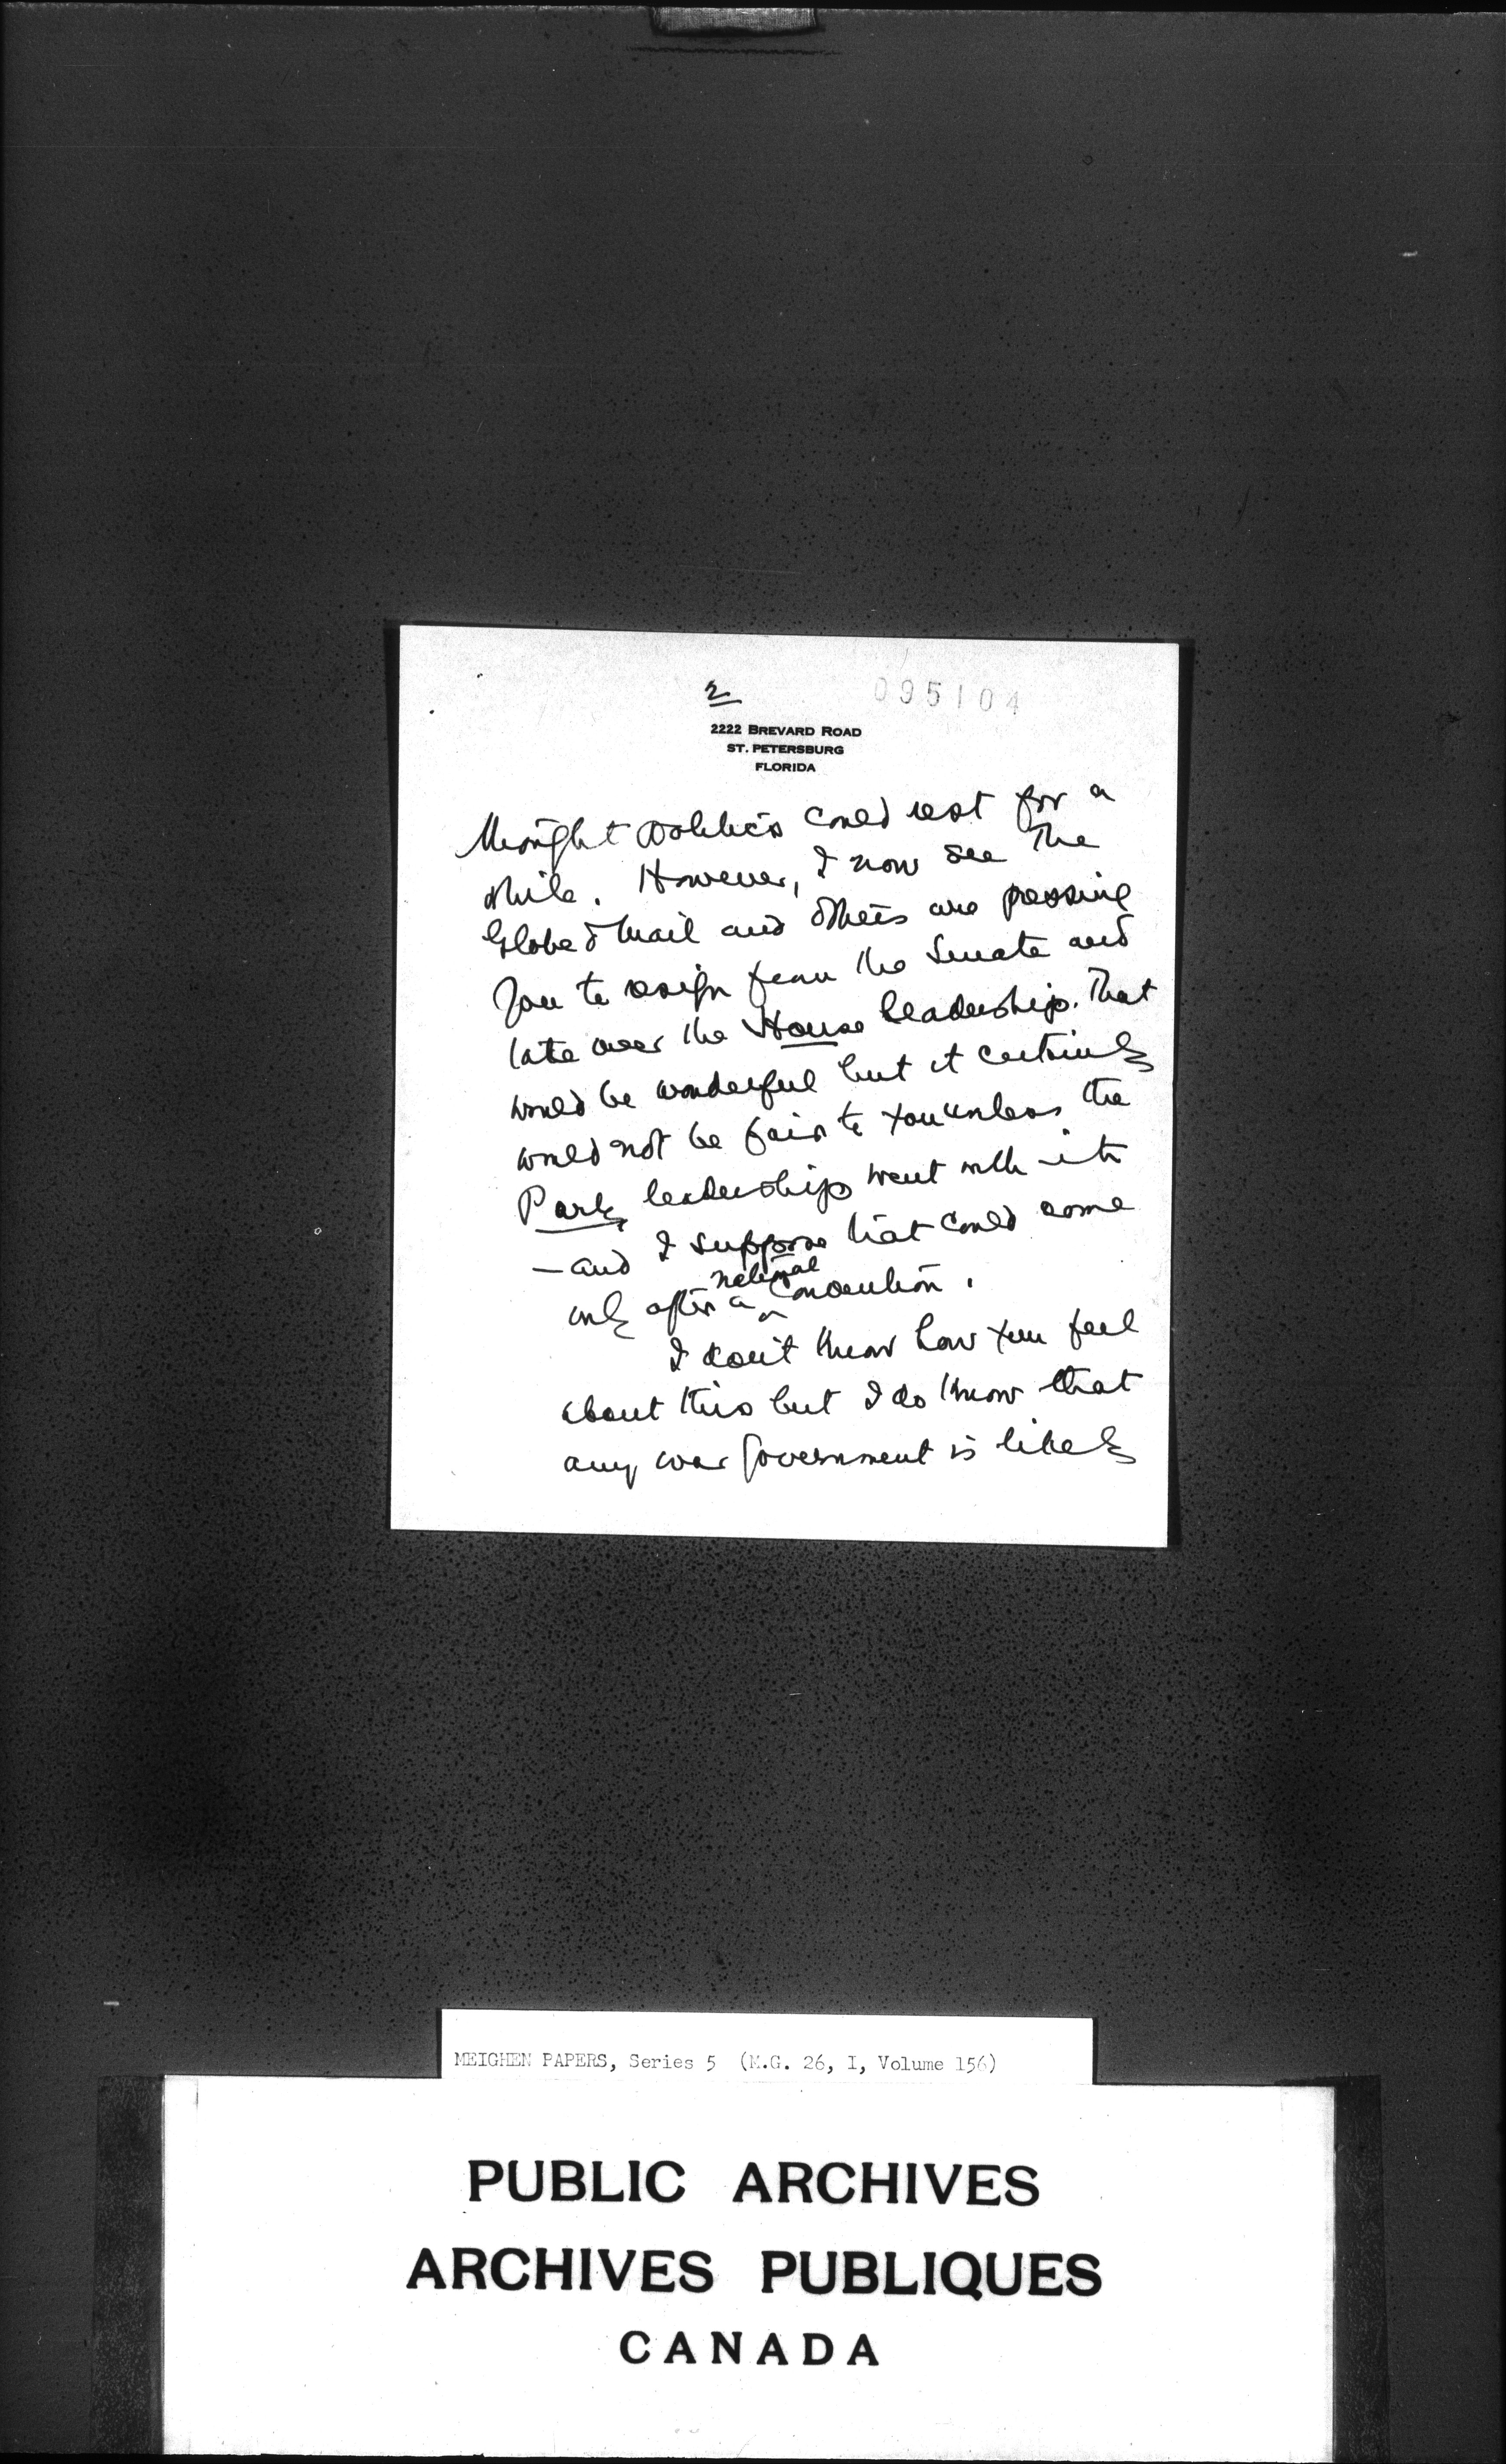 2
095104
2222 BREVARD ROAD
ST. PETERSBURG
FLORIDA
thought politics could rest for a
while. However, I now see the
Globe & Mail and others are pressing
you to resign from the Senate and
take over the House leadership. That
would be wonderful but it certainly
would not be fair to you unless the
Party leadership went with it
— and I suppose that could come
only after a national Convention.
I don't know how you feel
about this but I do know that
any war Government is likely
MEIGHEN PAPERS, Series 5 (M.G. 26, I, Volume 156)
PUBLIC ARCHIVES
ARCHIVES PUBLIQUES
CANADA